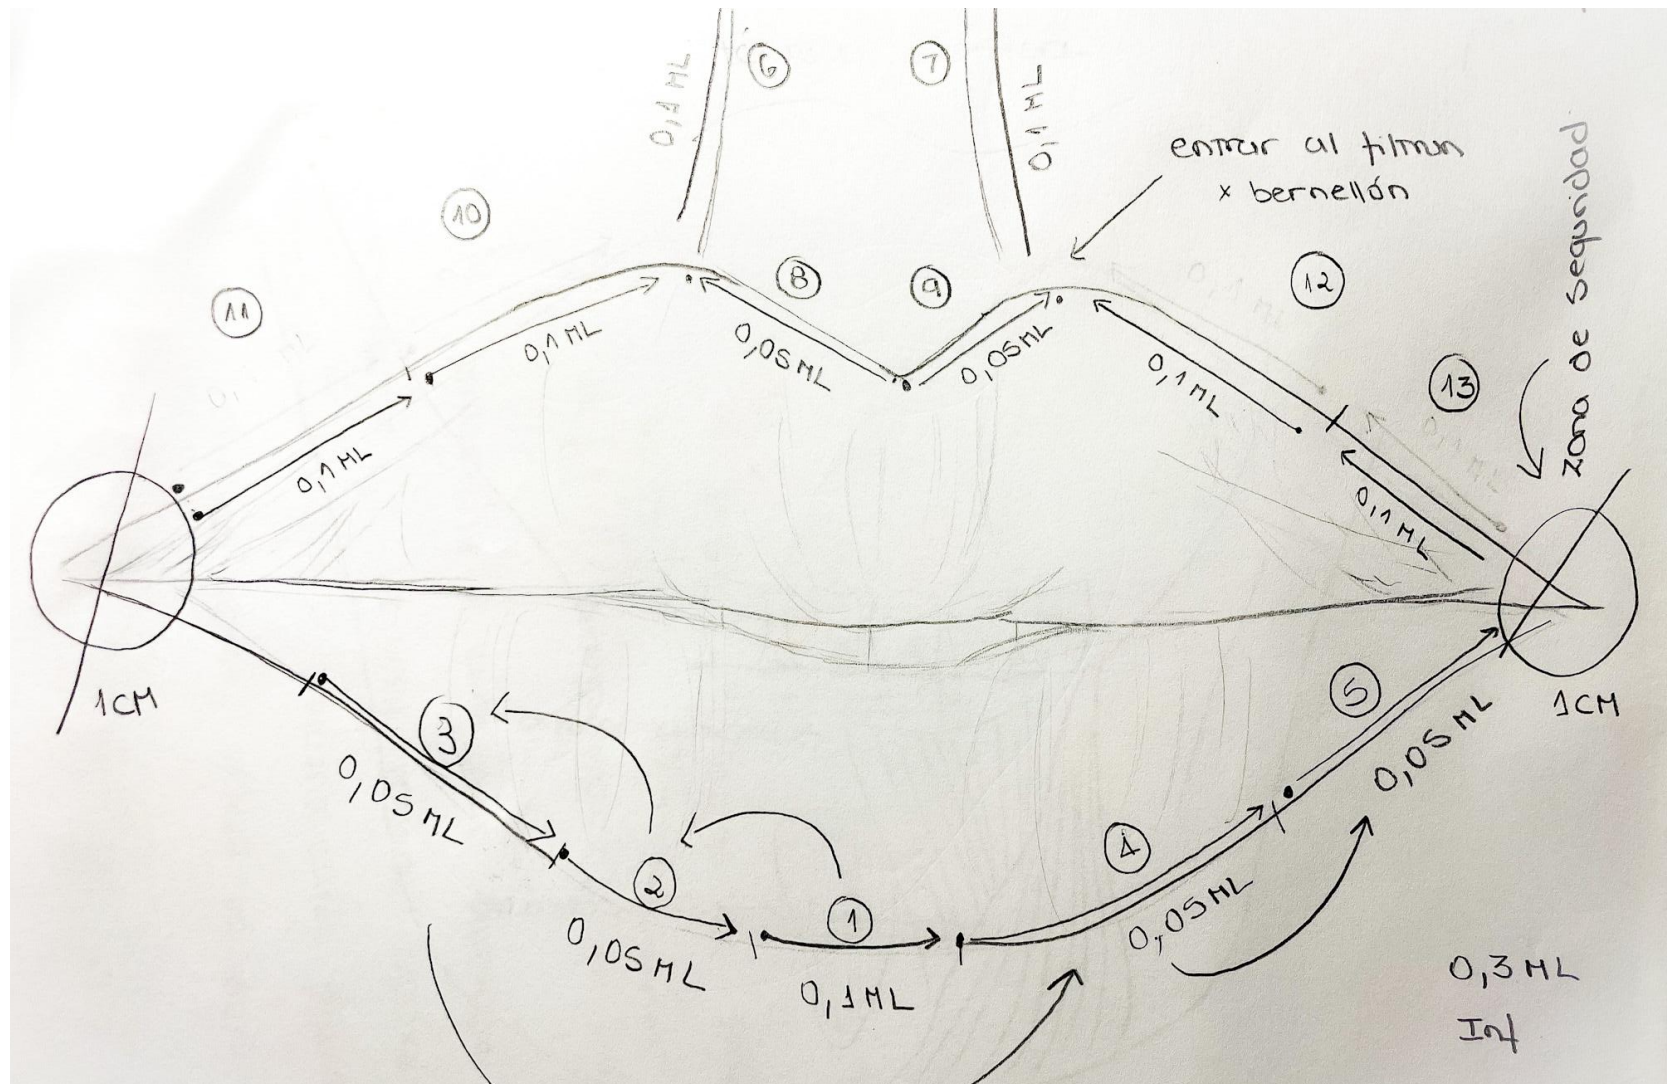 0,1 ML
6
7
0,1 ML
entrar al filtrum
x bernellón
zona de seguridad
10
11
8
9
12
13
0,1 ML
0,05 ML
0,05 ML
0,1 ML
0,1 ML
0,1 ML
1CM
1CM
3
5
0,05 ML
0,05 ML
2
1
4
0,05 ML
0,1 ML
0,05 ML
0,3 ML
Inf